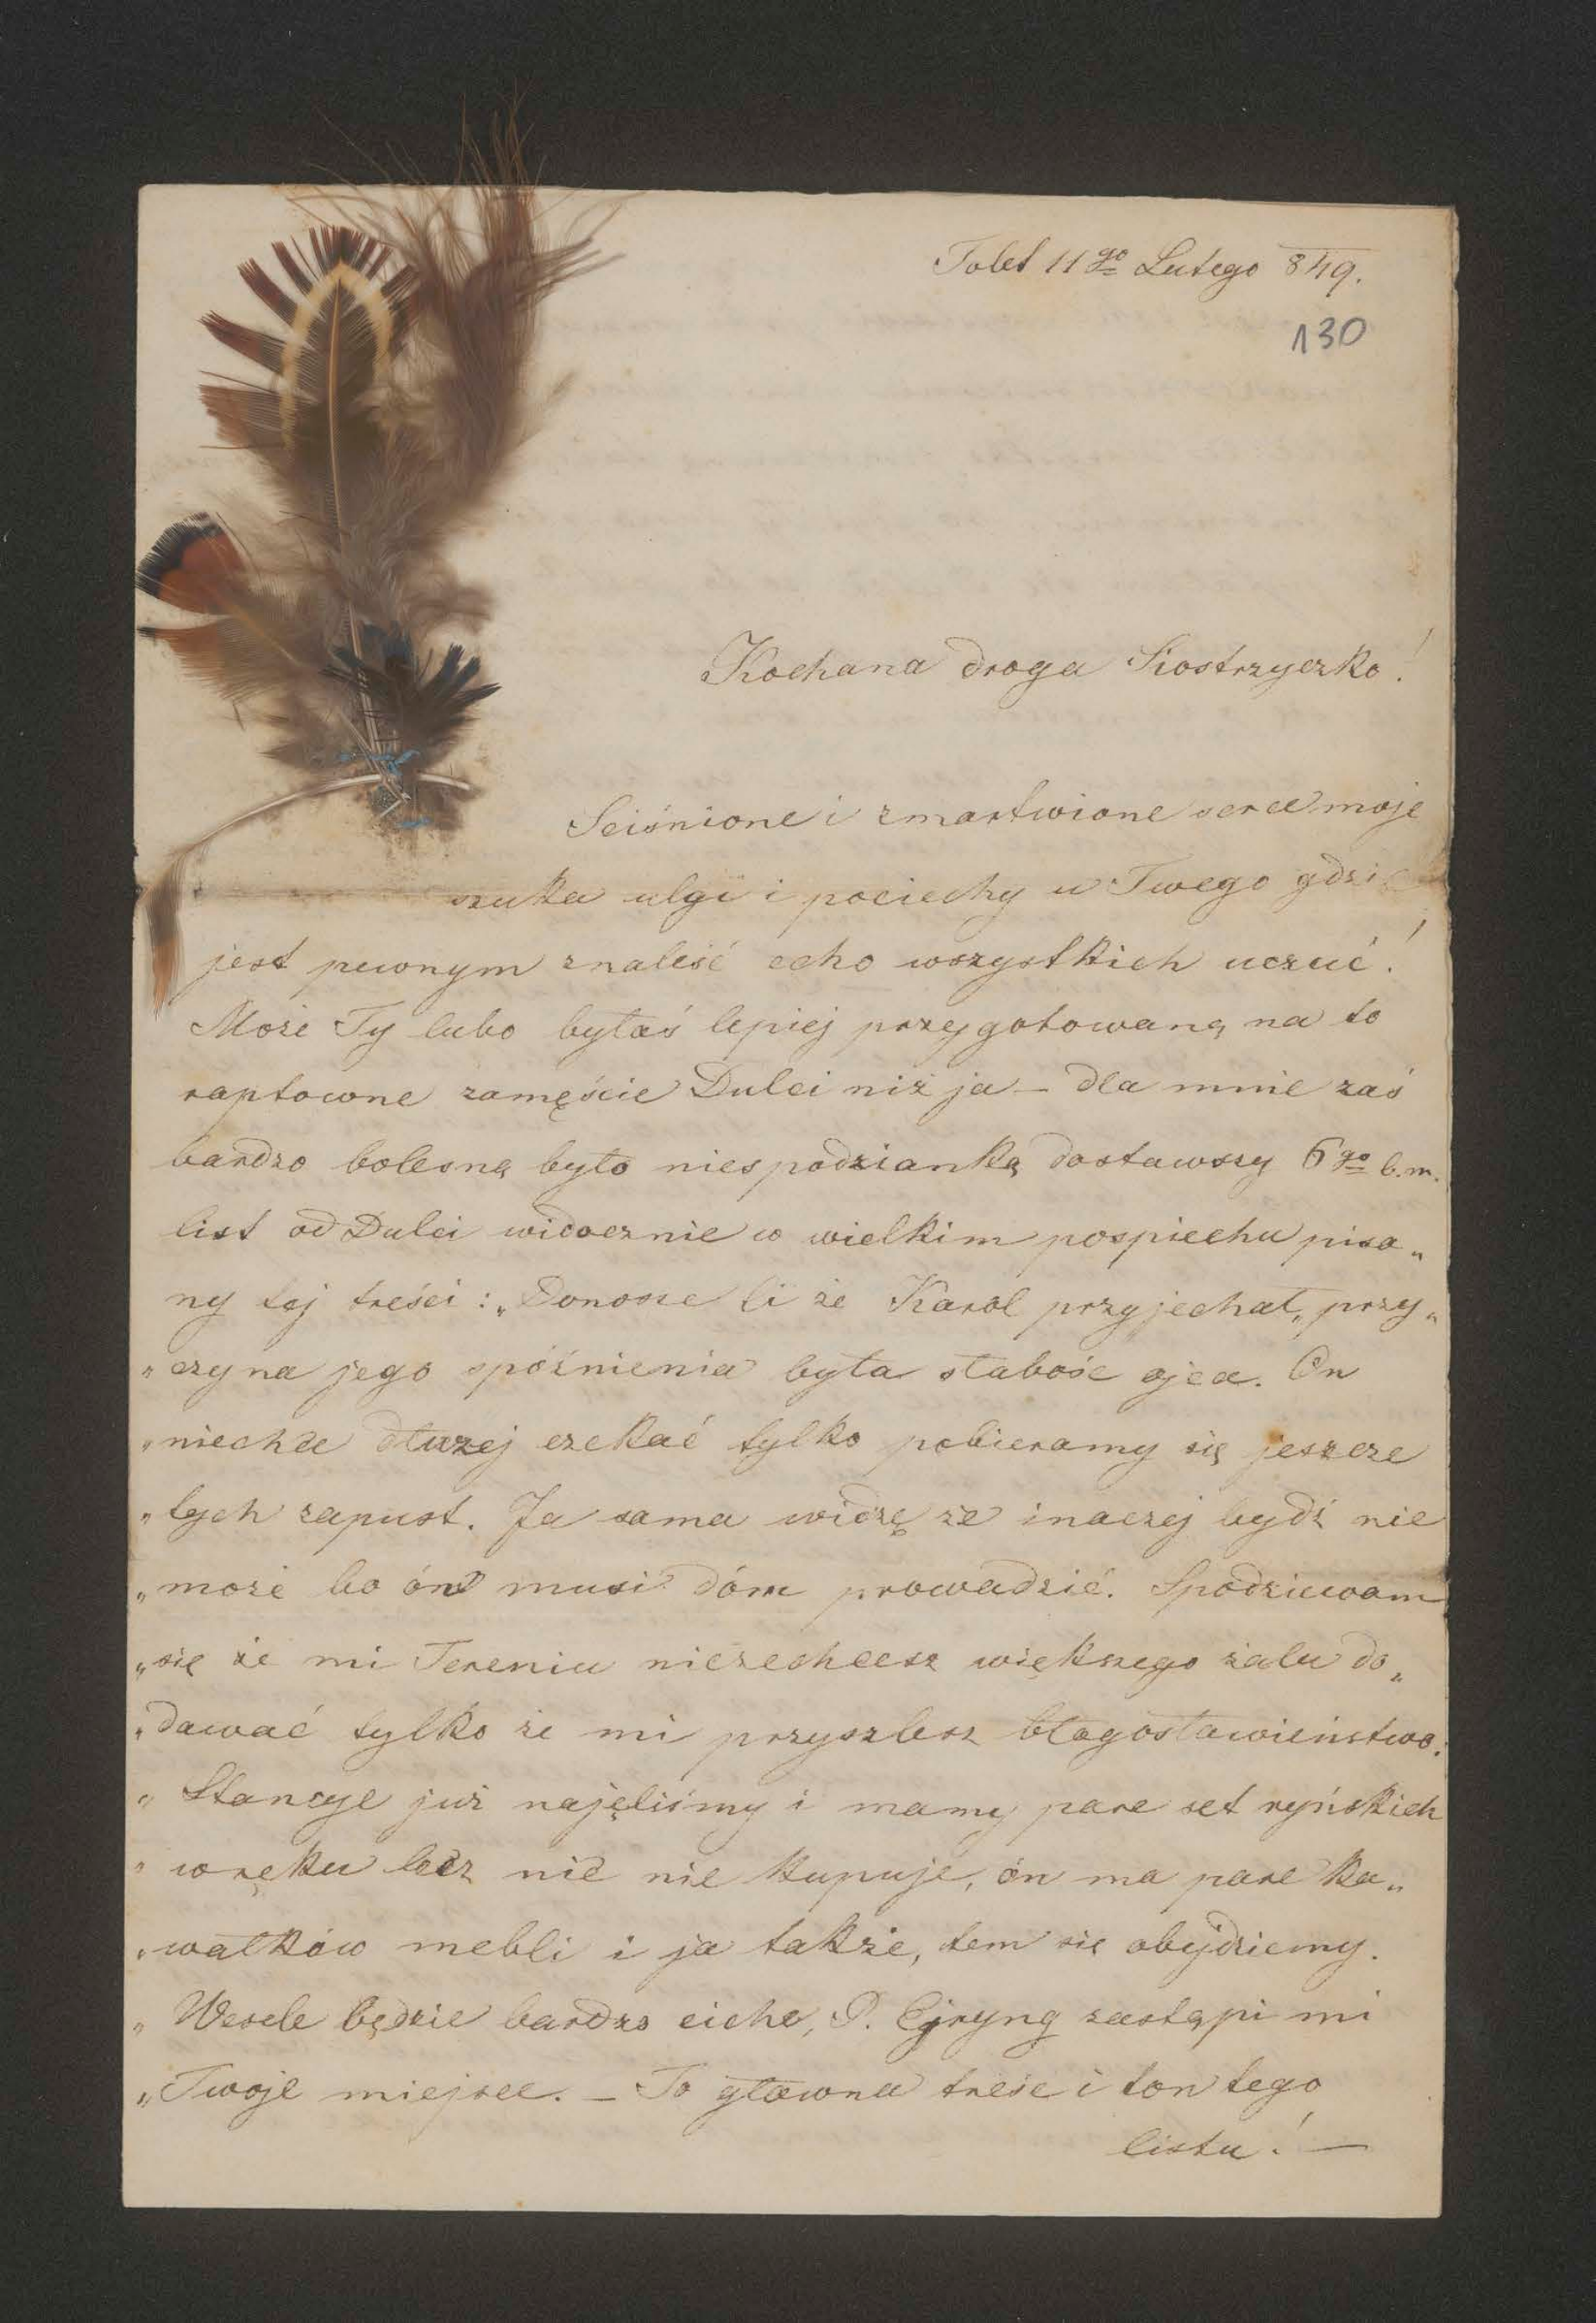 Tolet 11go Lutego 849.
130
Kochana droga Siostrzyczko!
Sciśnione i zmartwione serce moje
szuka ulgi i pociechy u Twego gdzie
jest pewnym znaleść echo wszystkich uczuć!
Może Ty lubo byłaś lepiej przygotowaną na to
raptowne zamęście Dulci niż ja – dla mnie zaś
bardzo bolesną było niespodzianką dostawszy 6go b.m.
list od Dulci widocznie w wielkim pospiechu pisa„
ny tej treści: „Donosze Ci że Karol przyjechał, przy„
„czyna jego spóźnienia była słabość ojca. On
„niechce dłużej czekać tylko pobieramy się jeszcze
„tych zapust. Ja sama widzę że inaczej bydź nie
„może bo ón musi dóm prowadzić. Spodziewam
„się że mi Tereniu niezechcesz większego żalu do„
„dawać tylko że mi przyszlesz błogosławieństwo.
„Stancye już najęliśmy i mamy pare set ryńskich
„w ręku lecz nic nie kupuje, ón ma pare ka„
„wałków mebli i ja także, tem się obyjdziemy.
„Wesele będzie bardzo ciche, P. Ejryng zastąpi mi
„Twoje miejsce. – To główna treść i ton tego
listu! —